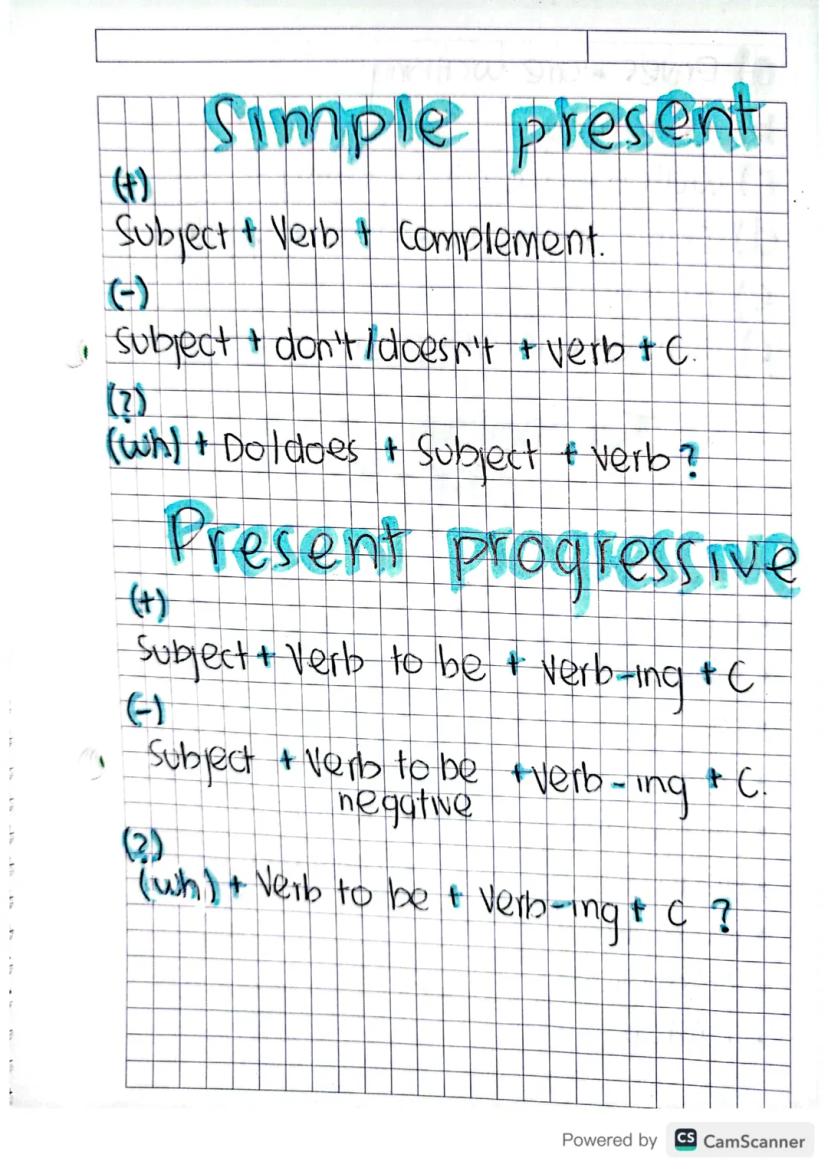 Simple present
(+)
Subject + Verb + Complement.
(-)
subject + don't/doesn't + verb + C.
(?)
(wh) + Do/does + subject + verb?
Present progressive
(+)
Subject + Verb to be + verb-ing + C
(-)
Subject + Verb to be + verb-ing + C.
negative
(?)
(wh) + Verb to be + verb-ing + C ?
Powered by CS CamScanner